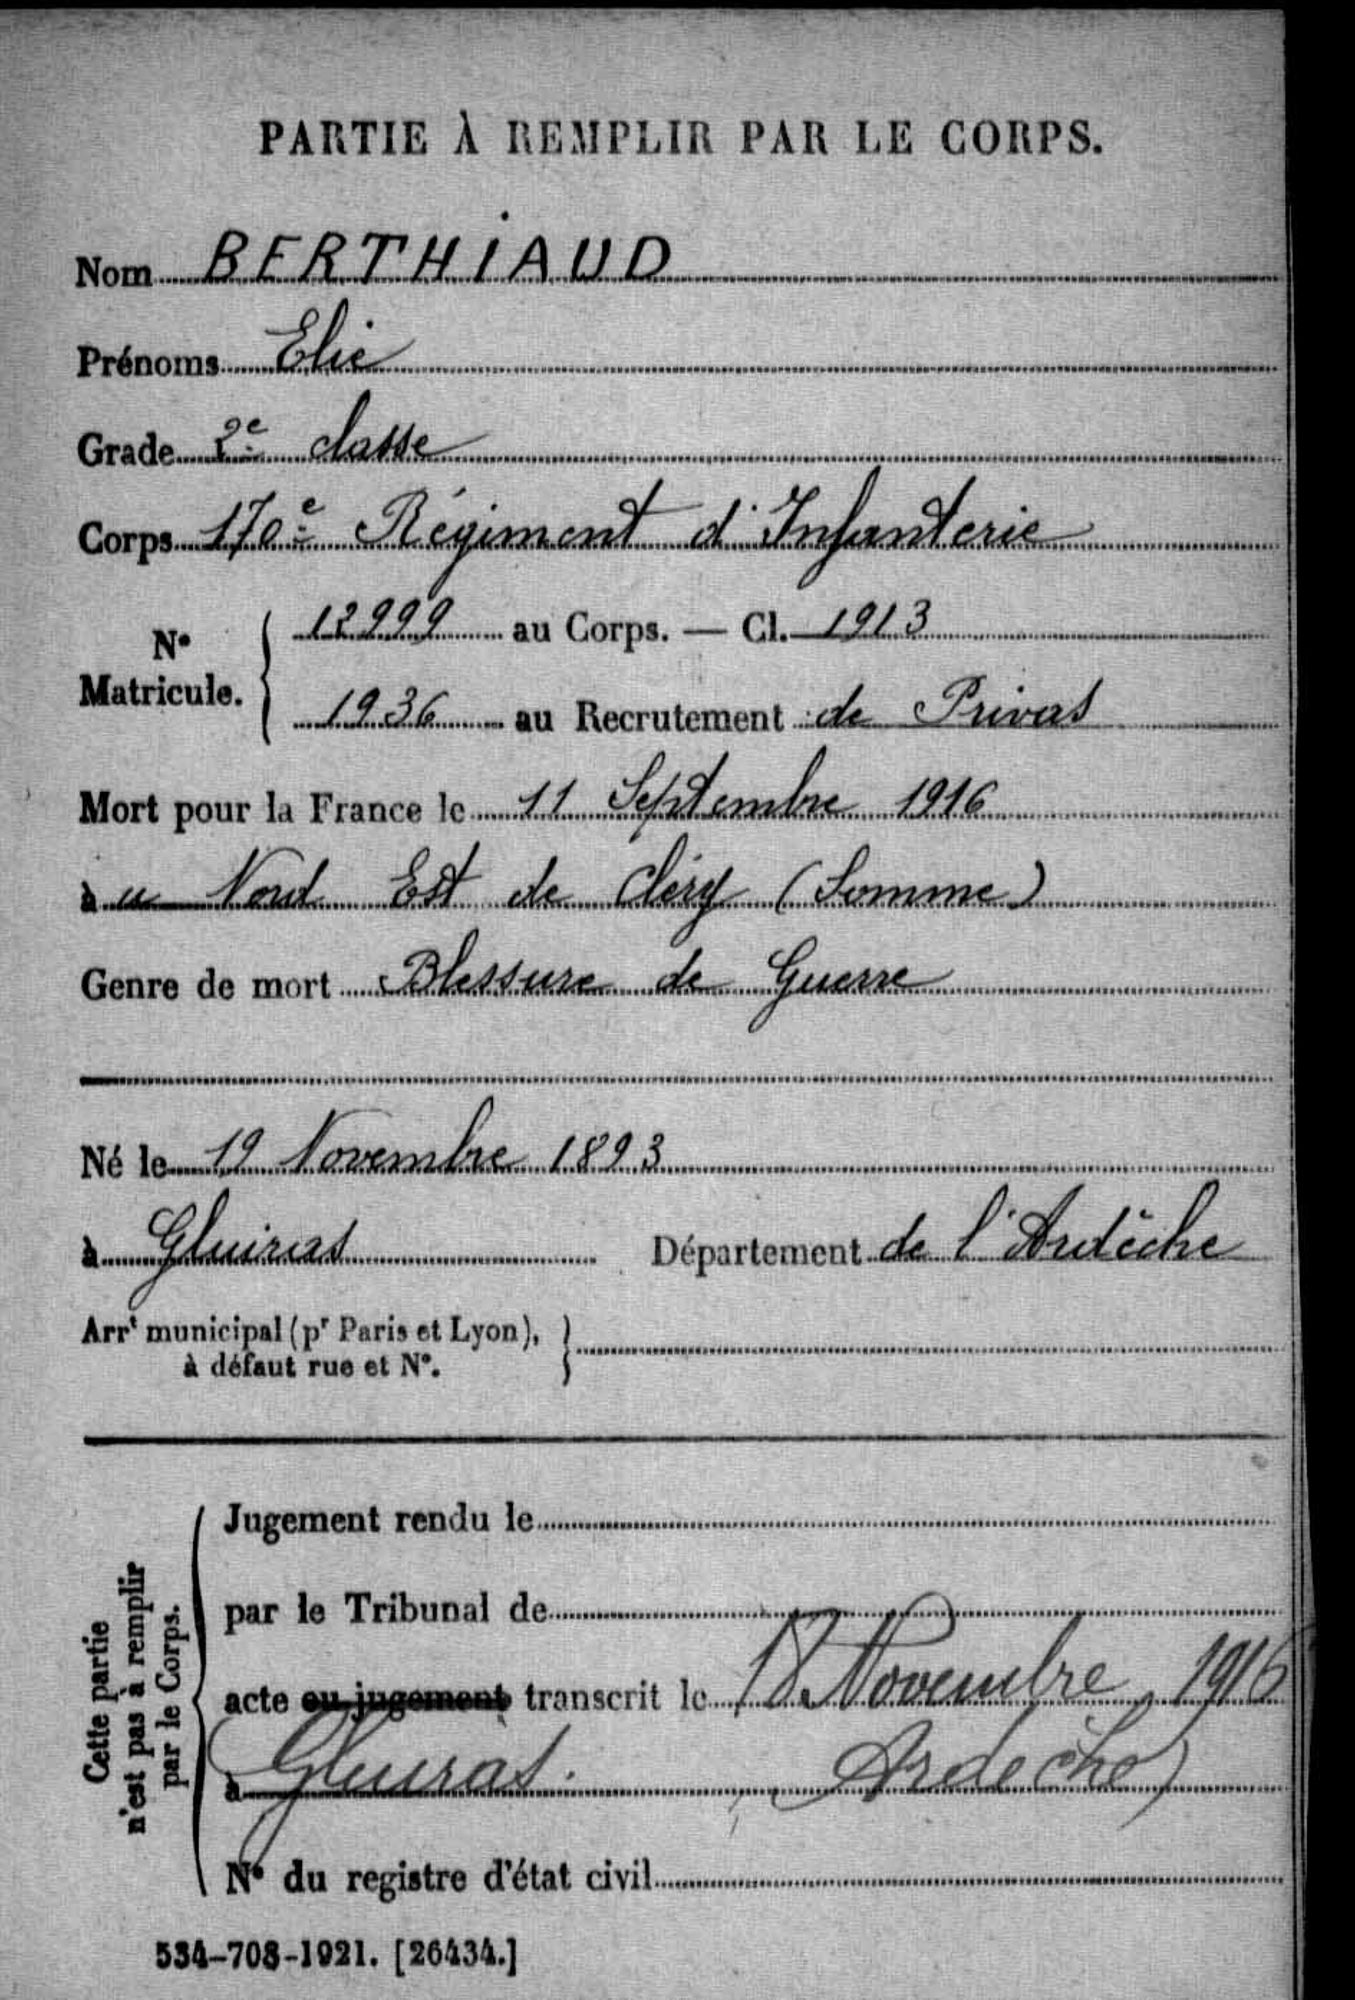 PARTIE À REMPLIR PAR LE CORPS.
Nom BERTHIAUD
Prénoms Elie
Grade 2e classe
Corps 170e Régiment d'Infanterie
No Matricule. { 12999 au Corps. — Cl. 1913
1936 au Recrutement de Privas
Mort pour la France le 11 Septembre 1916
à u Nord Est de Cléry (Somme)
Genre de mort Blessure de Guerre
Né le 19 Novembre 1893
à Gluiras Département de l'Ardèche
Arrt municipal (pr Paris et Lyon), }
à défaut rue et No.
Cette partie
n'est pas à remplir
par le Corps.
Jugement rendu le
par le Tribunal de
acte ou jugement transcrit le 18 Novembre 1916
à Gluiras. (Ardeche)
No du registre d'état civil
534-708-1921. [26434.]